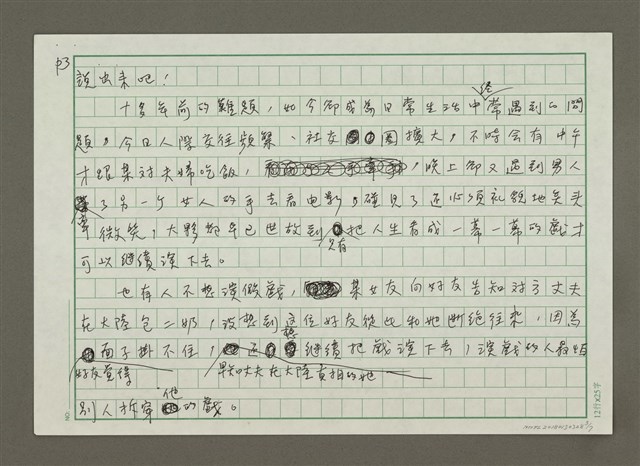 P3
說出來吧！
十多年前的難題，如今卻成為日常生活中經常遇到的問
題，今日人際交往頻繁、社交圈擴大，不時會有中午
才跟某對夫婦吃飯，晚上卻又遇到男人
牽了另一个女人的手去看电影，碰見了还必須礼貌地点头
微笑，大夥都早已世故到只有把人生看成一幕一幕的戲才
可以继續演下去。
也有人不想演假戲，某女友向好友告知对方丈夫
在大陸包二奶，沒想到這位好友從此和她断绝往來，因為
好友覺得面子掛不住，早知丈夫在大陸真相的她还想继續把戲演下去，演戲的人最怕
別人拆穿他的戲。
12行×25字